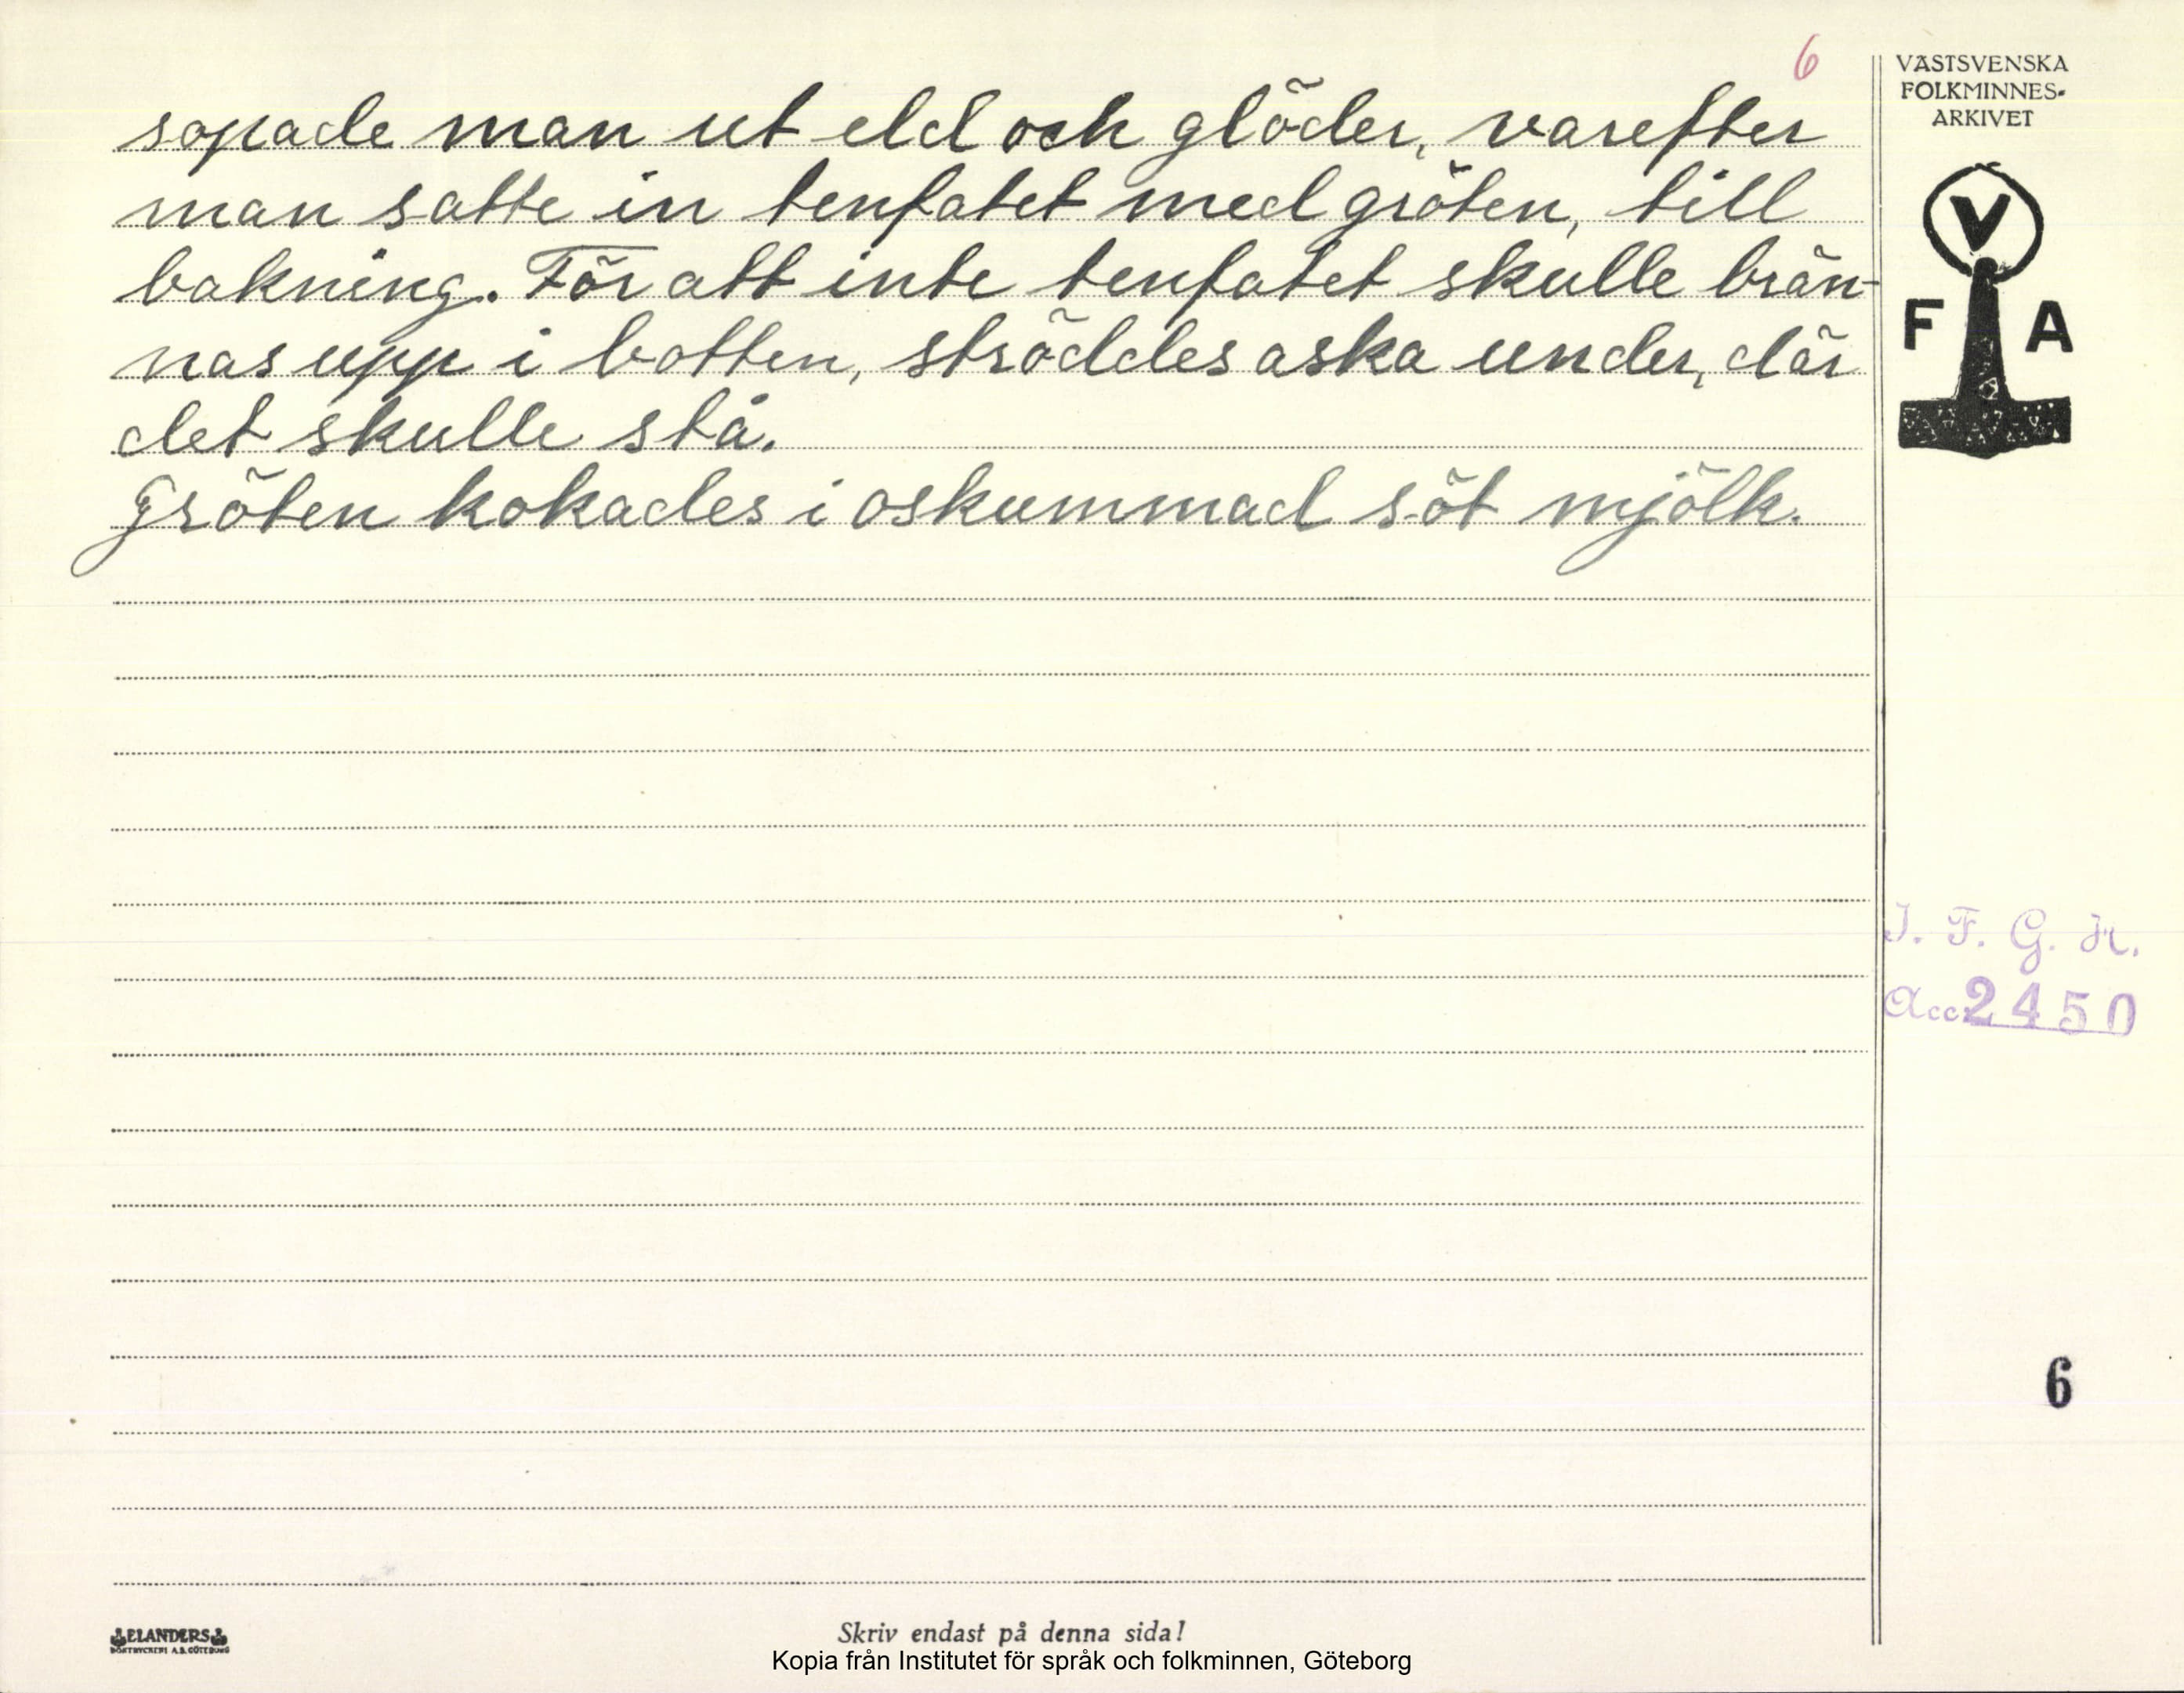 6
VÄSTSVENSKA
FOLKMINNES-
ARKIVET
V
F A
sopade man ut eld och glöder, varefter
man satte in tenfatet med gröten, till
bakning. För att inte tenfatet skulle brän-
nas upp i botten, ströddes aska under, där
det skulle stå.
Gröten kokades i oskummad söt mjölk.
I. F. G. H.
Acc. 2450
6
ELANDERS
BOKTRYCKERI A.B. GÖTEBORG
Skriv endast på denna sida!
Kopia från Institutet för språk och folkminnen, Göteborg